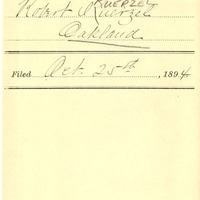 KUERZEL
Robert Kuerzel
Oakland
Filed Oct. 25th, 1894